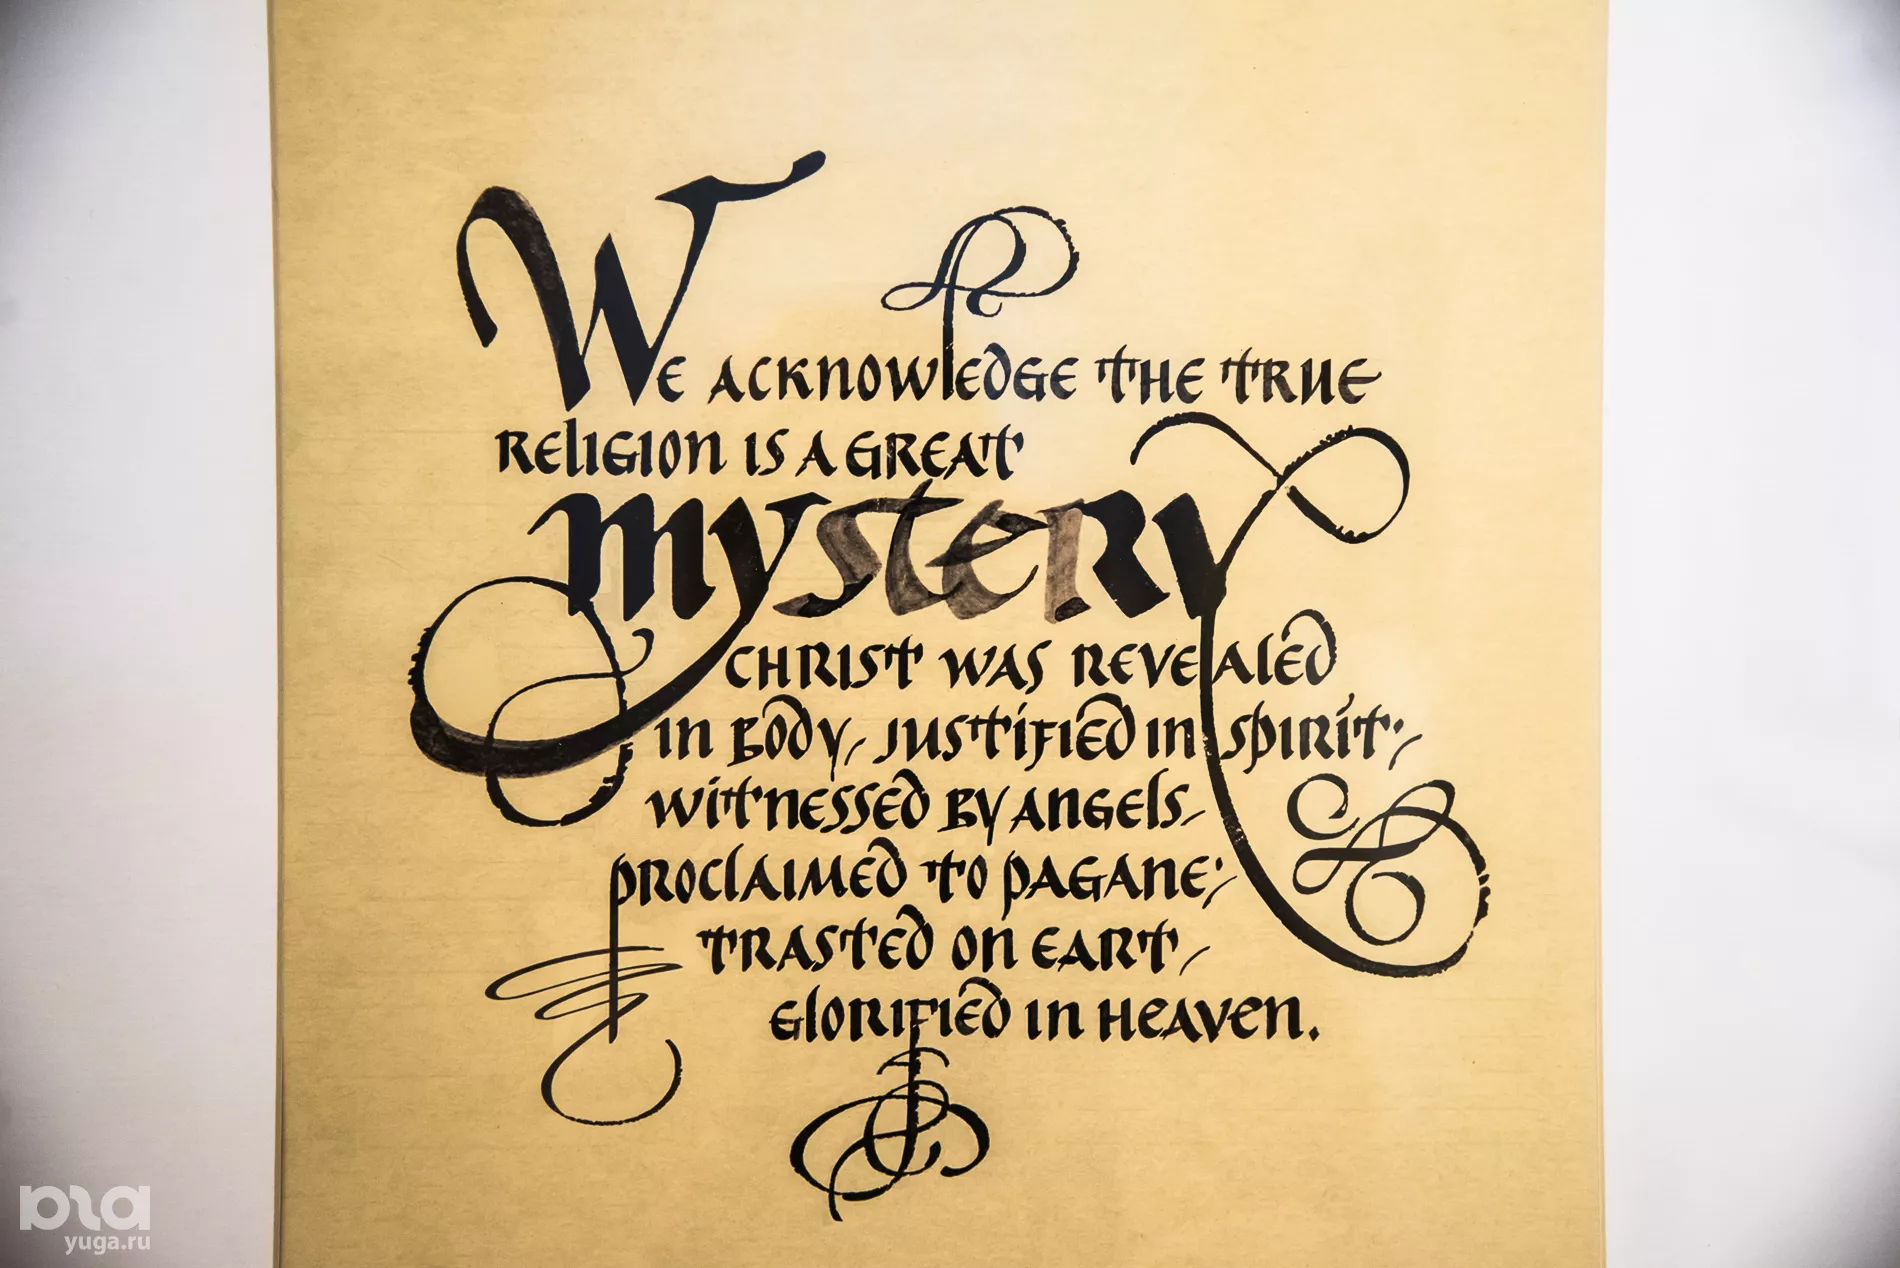 We acknowledge the true
religion is a great
mystery
Christ was revealed
in body, justified in spirit;
witnessed by angels,
proclaimed to pagane;
trasted on eart,
glorified in heaven.
yuga.ru